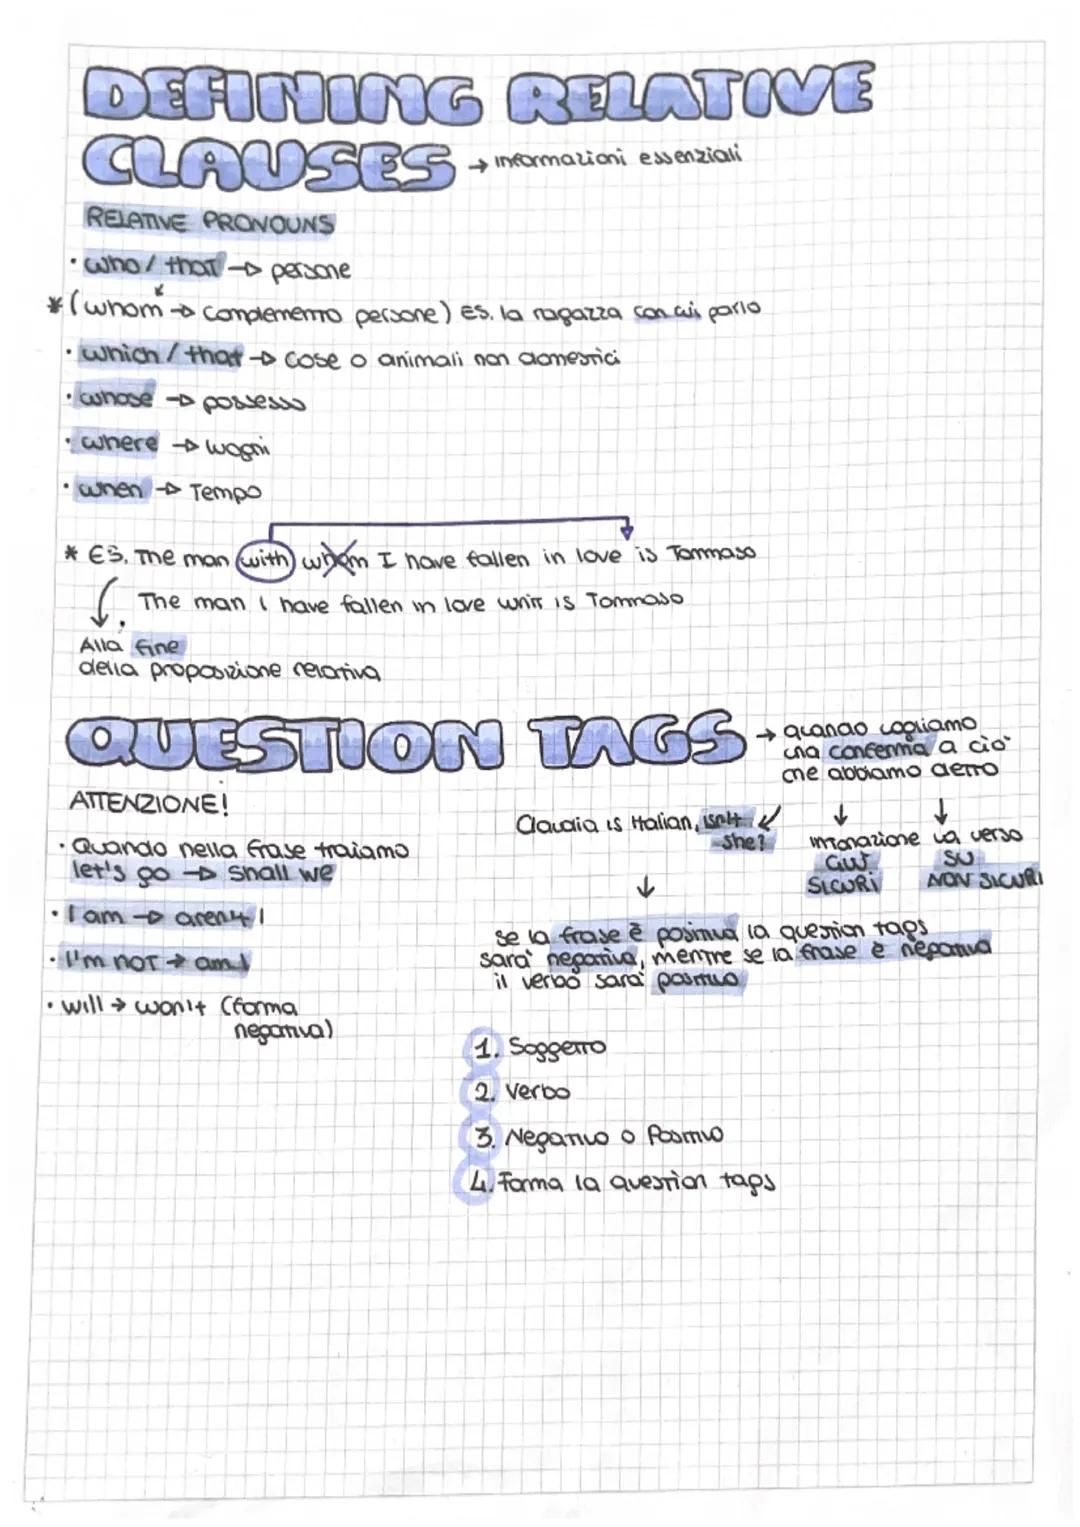 DEFINING RELATIVE
CLAUSES → informazioni essenziali
RELATIVE PRONOUNS
• who / that → persone
* (whom → complemento persone) ES. la ragazza con cui parlo
• which / that → cose o animali non domestici
• whose → possesso
• where → luoghi
• when → Tempo
* ES. The man with whom I have fallen in love is Tommaso
The man I have fallen in love with is Tommaso
Alla fine
della proposizione relativa
QUESTION TAGS → quando vogliamo
una conferma a ciò
che abbiamo detto
ATTENZIONE!
• Quando nella frase troviamo
let's go → shall we
• I am → aren't I
• I'm not → am I
• will → won't (forma
negativa)
Claudia is Italian, isn't
she?
intonazione va verso
GIÙ SU
SICURI NON SICURI
se la frase è positiva la question taps
sarà negativa, mentre se la frase è negativa
il verbo sarà positivo
1. Soggetto
2. Verbo
3. Negativo o Positivo
4. Forma la question taps